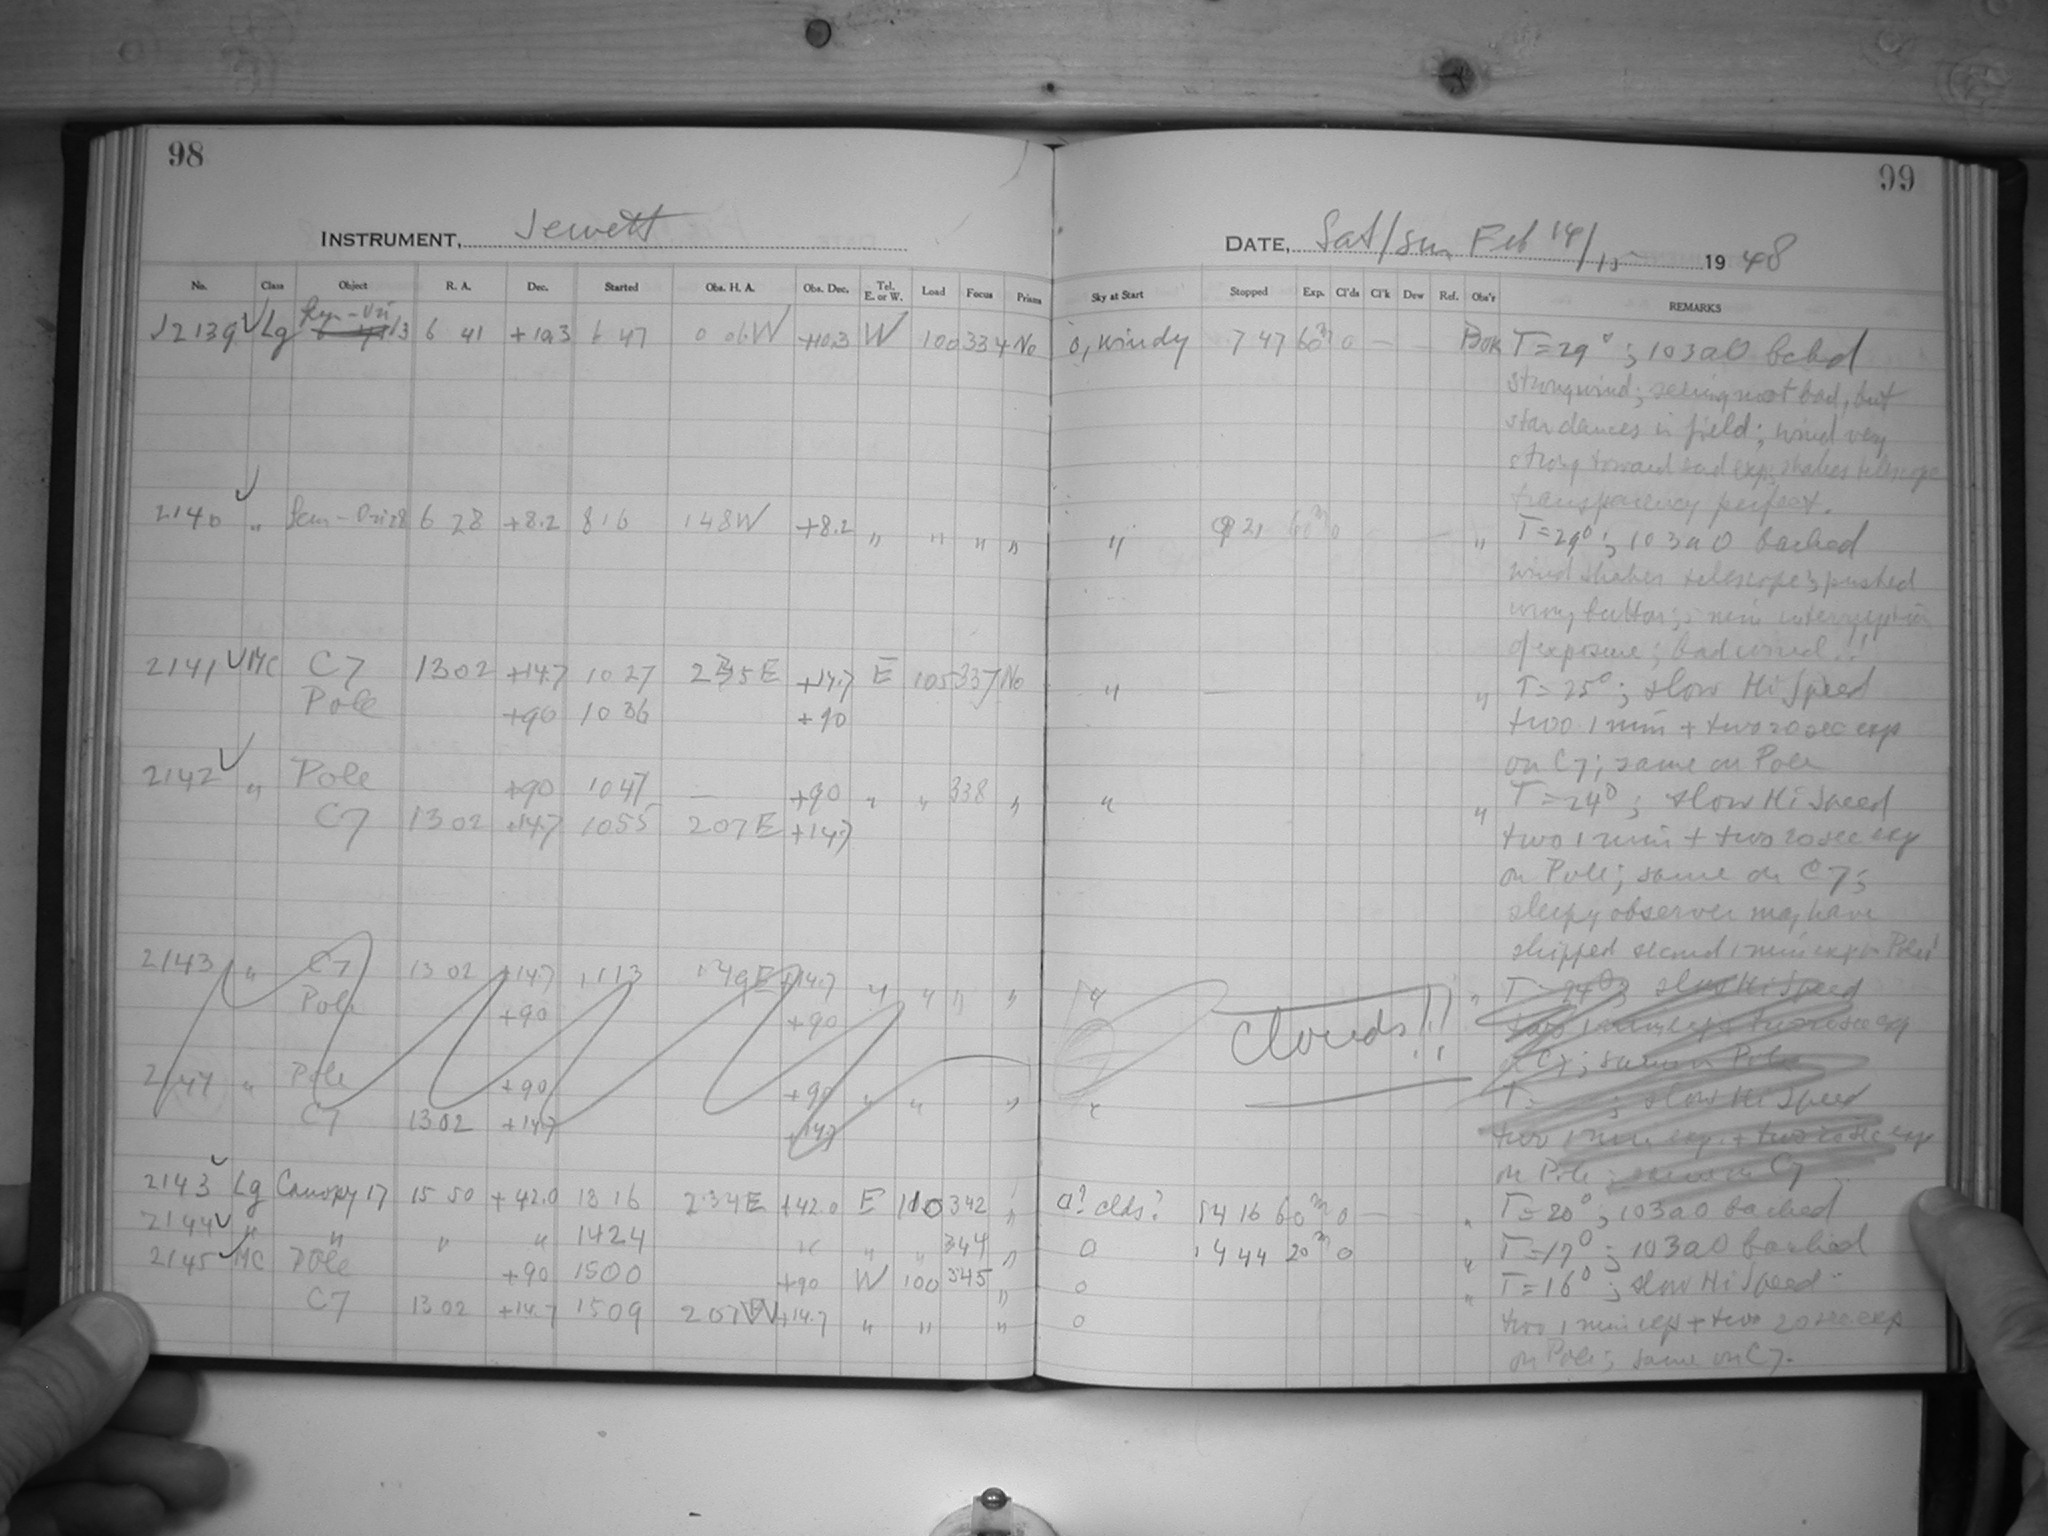 98
INSTRUMENT, Jewett
No. Class Object R. A. Dec. Started Obs. H. A. Obs. Dec. Tel. E. or W. Load Focus Prism
J2139 Lg 6 41 +10.3 6 47 0 01W +10.3 W 100 334 No
2140 " 6 28 +8.2 8 16 1 48W +8.2 " " " "
2141 MC C7 13 02 +14.7 10 27 E +14.7 E 105 337 No
Pole +90 10 36 +90
2142 " Pole +90 10 47 — +90 " " 338 "
C7 13 02 +14.7 10 55 2 07E +14.7
2143 " C7 13 02 +14.7 11 13 1 49E +14.7 " " " "
Pole +90 +90
" Pole +90 +90 " " "
C7 13 02 +14.7 +14.7
2143 Lg Canopy 17 15 50 +42.0 13 16 2 34E +42.0 E 110 342 "
2144 " " " " 1424 " " " 344 "
2145 MC Pole +90 1500 +90 W 100 345 "
C7 13 02 +14.7 1509 2 07W +14.7 " " "
99
DATE, Sat/Sun Feb 14/15 1948
Sky at Start Stopped Exp. Cl'ds Cl'k Dew Ref. Obs'r REMARKS
0, windy 7 47 60m 0 — — Bok T=29°; 103aO backed
strong wind; seeing not bad, but
star dances in field; wind very
strong toward end exp; shakes telescope
transparency perfect.
" 9 21 60m 0 — " T=29°; 103aO backed
wind shakes telescope; pushed
wrong button; interruption
of exposure; bad wind!!
" — " T=25°; slow Hi Speed
two 1 min + two 20 sec exp
on C7; same on Pole
" " T=24°; slow Hi Speed
two 1 min + two 20 sec exp
on Pole; same on C7;
sleepy observer may have
skipped second 1 min exp on Pole!
" " T=24°; slow Hi Speed
two 1 min exp + two 20 sec exp
on C7; same on Pole
Clouds!!
" T= ; slow Hi Speed
two 1 min exp. + two 20 sec exp
on Pole; same on C7
0? clds? 14 16 60m 0 — — " T=20°; 103aO backed
0 14 44 20m 0 " T=17°; 103aO backed
0 " T=16°; slow Hi Speed
0 two 1 min exp + two 20 sec exp
on Pole; same on C7.